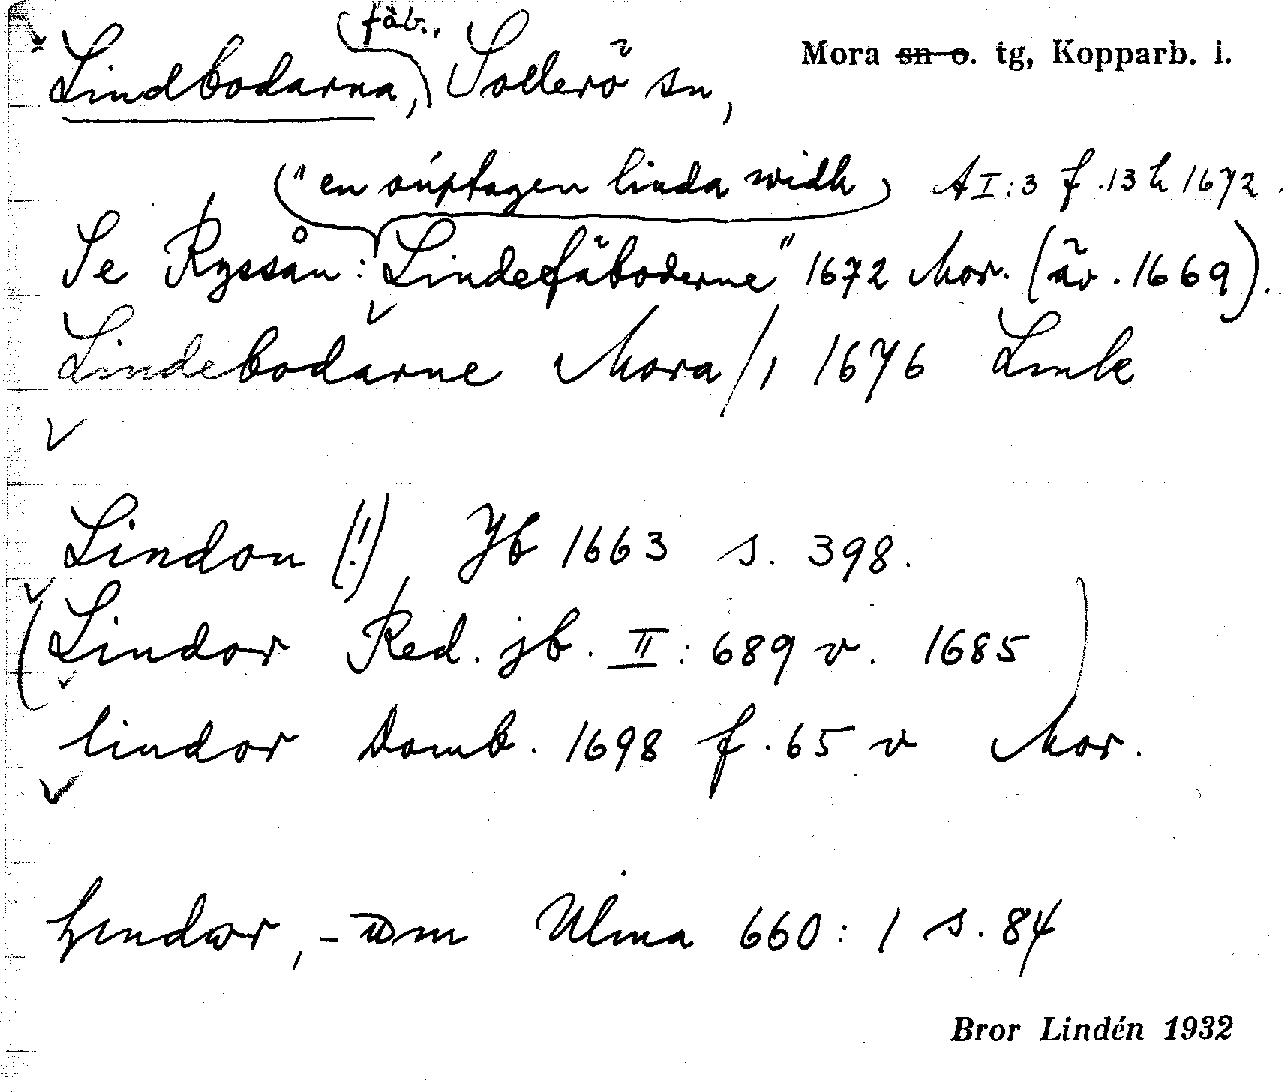 fäb.,
Lindbodarna, Sollerö sn,
Mora sn o. tg, Kopparb. l.
(" en oúptagen linda widh) A I:3 f. 13 h 1672.
Se Ryssån: Lindefäboderne" 1672 Mor. (äv. 1669).
Lindebodarne Mora/1 1676 Lmk
Lindon (!) Jb 1663 s. 398.
(Lindor Red. jb. II: 689 v. 1685)
lindor Domb. 1698 f. 65 v Mor.
Ulma 660: 1 s. 84
Bror Lindén 1932